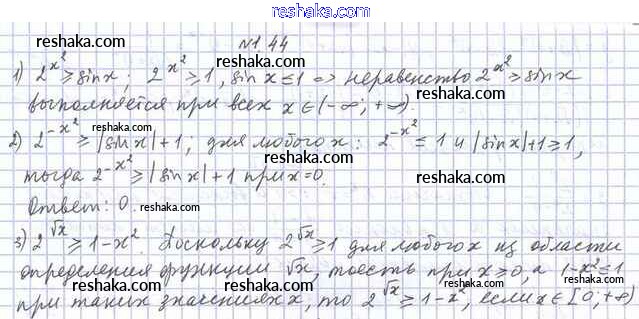 reshaka.com
№1.44
reshaka.com
reshaka.com
1) 2^{x^2} ≥ sin x; 2^{x^2} ≥ 1, sin x ≤ 1 => неравенство 2^{x^2} ≥ sin x
выполняется при всех x ∈ (-∞; +∞).
reshaka.com
reshaka.com
2) 2^{-x^2} ≥ |sin x| + 1; для любого x: 2^{-x^2} ≤ 1 и |sin x| + 1 ≥ 1,
reshaka.com
тогда 2^{-x^2} ≥ |sin x| + 1 при x = 0.
reshaka.com
Ответ: 0.
reshaka.com
reshaka.com
3) 2^{√x} ≥ 1 - x^2. Поскольку 2^{√x} ≥ 1 для любого x из области
reshaka.com
определения функции √x, то есть при x ≥ 0, а 1 - x^2 ≤ 1
при таких значениях x, то 2^{√x} ≥ 1 - x^2, если x ∈ [0; +∞)
reshaka.com
reshaka.com